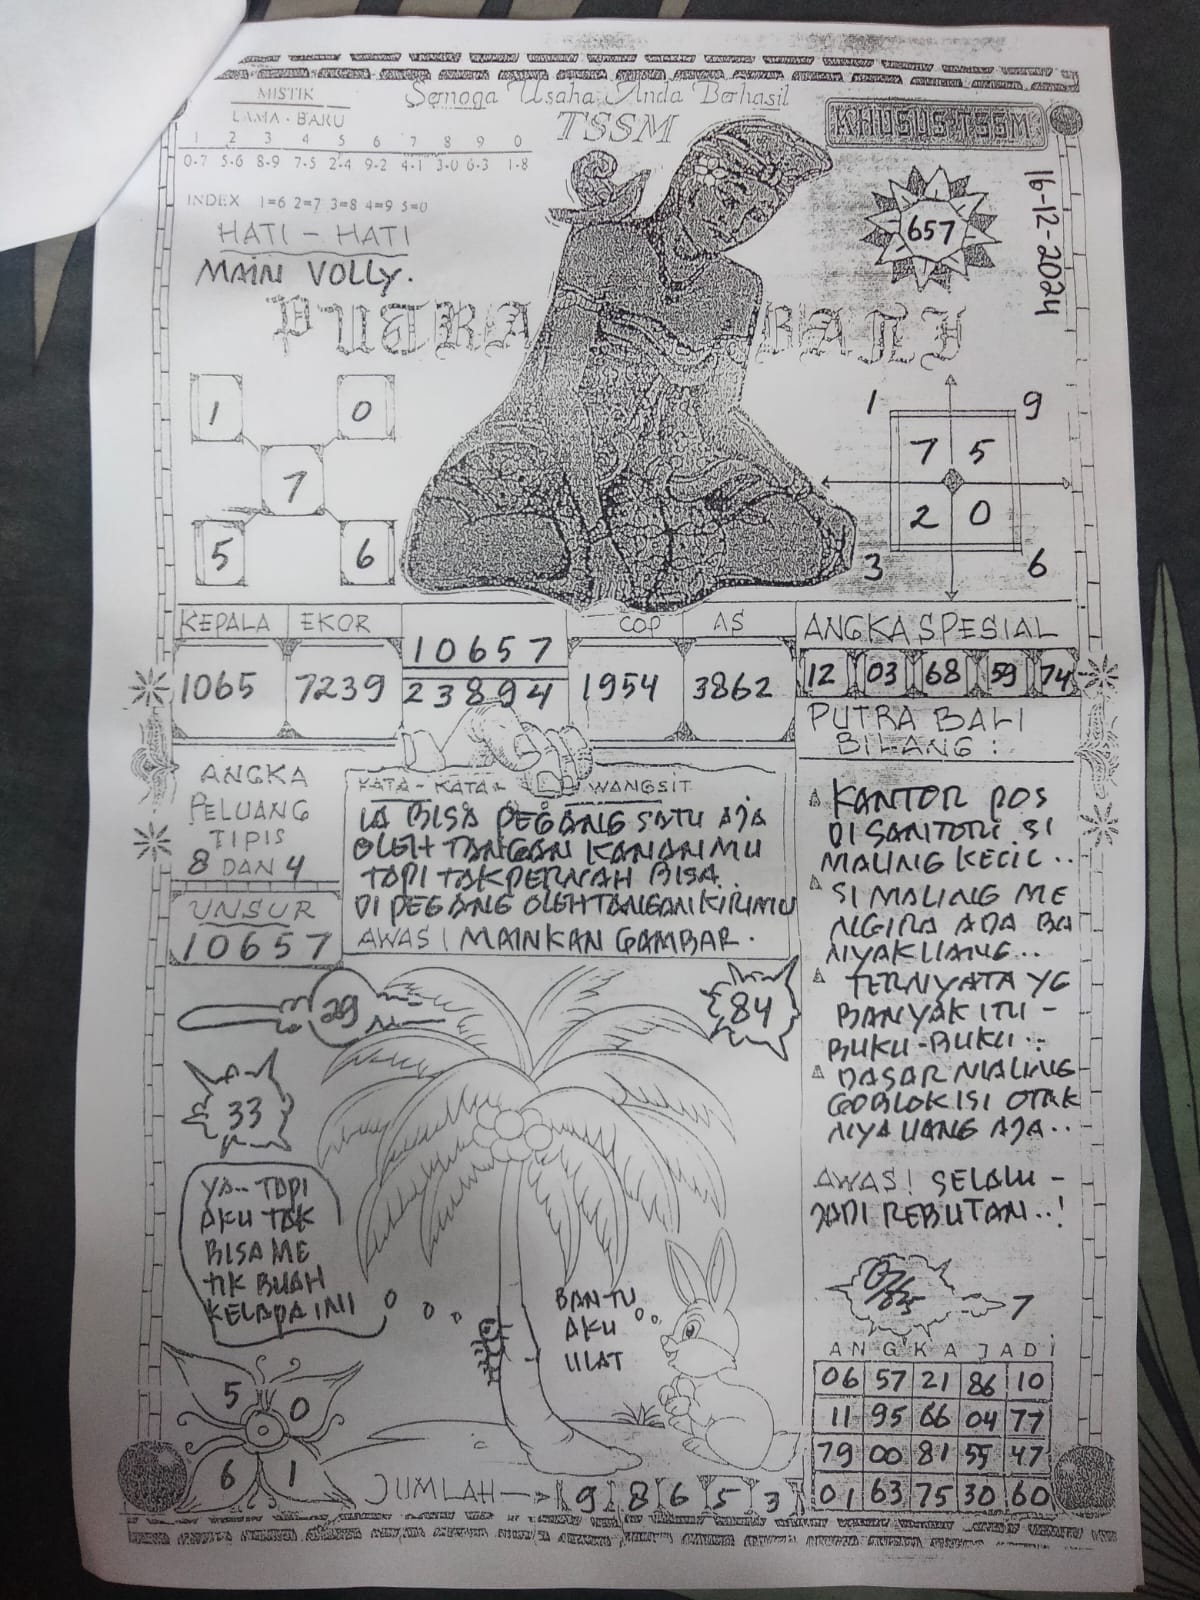 Semoga Usaha Anda Berhasil
TSSM
KHUSUS TSSM
16-12-2024
MISTIK
LAMA - BARU
1 2 3 4 5 6 7 8 9 0
0-7 5-6 8-9 7-5 2-4 9-2 4-1 3-0 6-3 1-8
INDEX 1=6 2=7 3=8 4=9 5=0
HATI - HATI
MAIN VOLLY.
657
PUTRA BALI
1 0
7
5 6
1 9
7 5
2 0
3 6
KEPALA EKOR
1065 7239
10657
23894
COP AS
1954 3862
ANGKA SPESIAL
12 03 68 59 74
ANGKA
PELUANG
TIPIS
8 DAN 4
UNSUR
10657
KATA - KATA - WANGSIT
IA BISA PEGANG SATU AJA
OLEH TANGAN KANANMU
TAPI TAK PERNAH BISA
DI PEGANG OLEH TANGAN KIRIMU
AWAS! MAINKAN GAMBAR.
PUTRA BALI
BILANG :
KANTOR POS
DI SANTORI SI
MALING KECIL..
SI MALING ME
NGIRA ADA BA
NYAK UANG..
TERNYATA YG
BANYAK ITU -
BUKU-BUKU..
DASAR MALING
GOBLOK ISI OTAK
NYA UANG AJA..
AWAS! SELALU -
JADI REBUTAN..!
29
84
33
YA.. TAPI
AKU TAK
BISA ME
TIK BUAH
KELAPA INI
BANTU
AKU
ULAT
5 0
6 1
JUMLAH → 9 8 6 5 3
7
ANGKA JADI
06 57 21 86 10
11 95 66 04 77
79 00 81 55 47
01 63 75 30 60